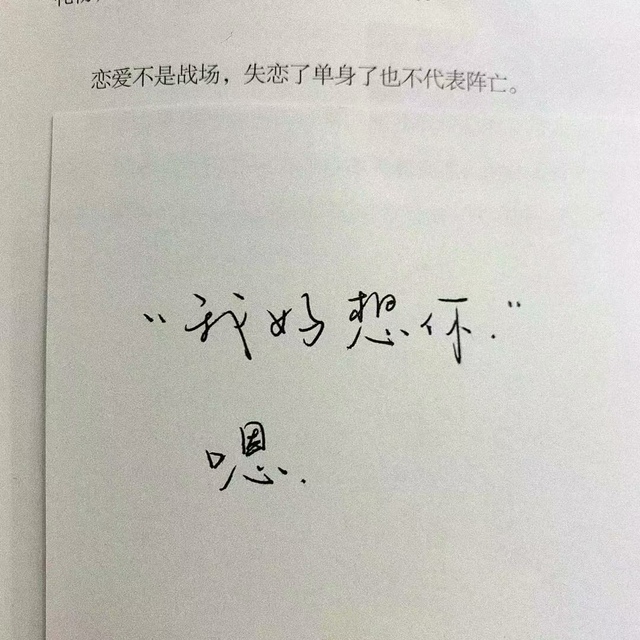 恋爱不是战场，失恋了单身了也不代表阵亡。
“我好想你.”
嗯.